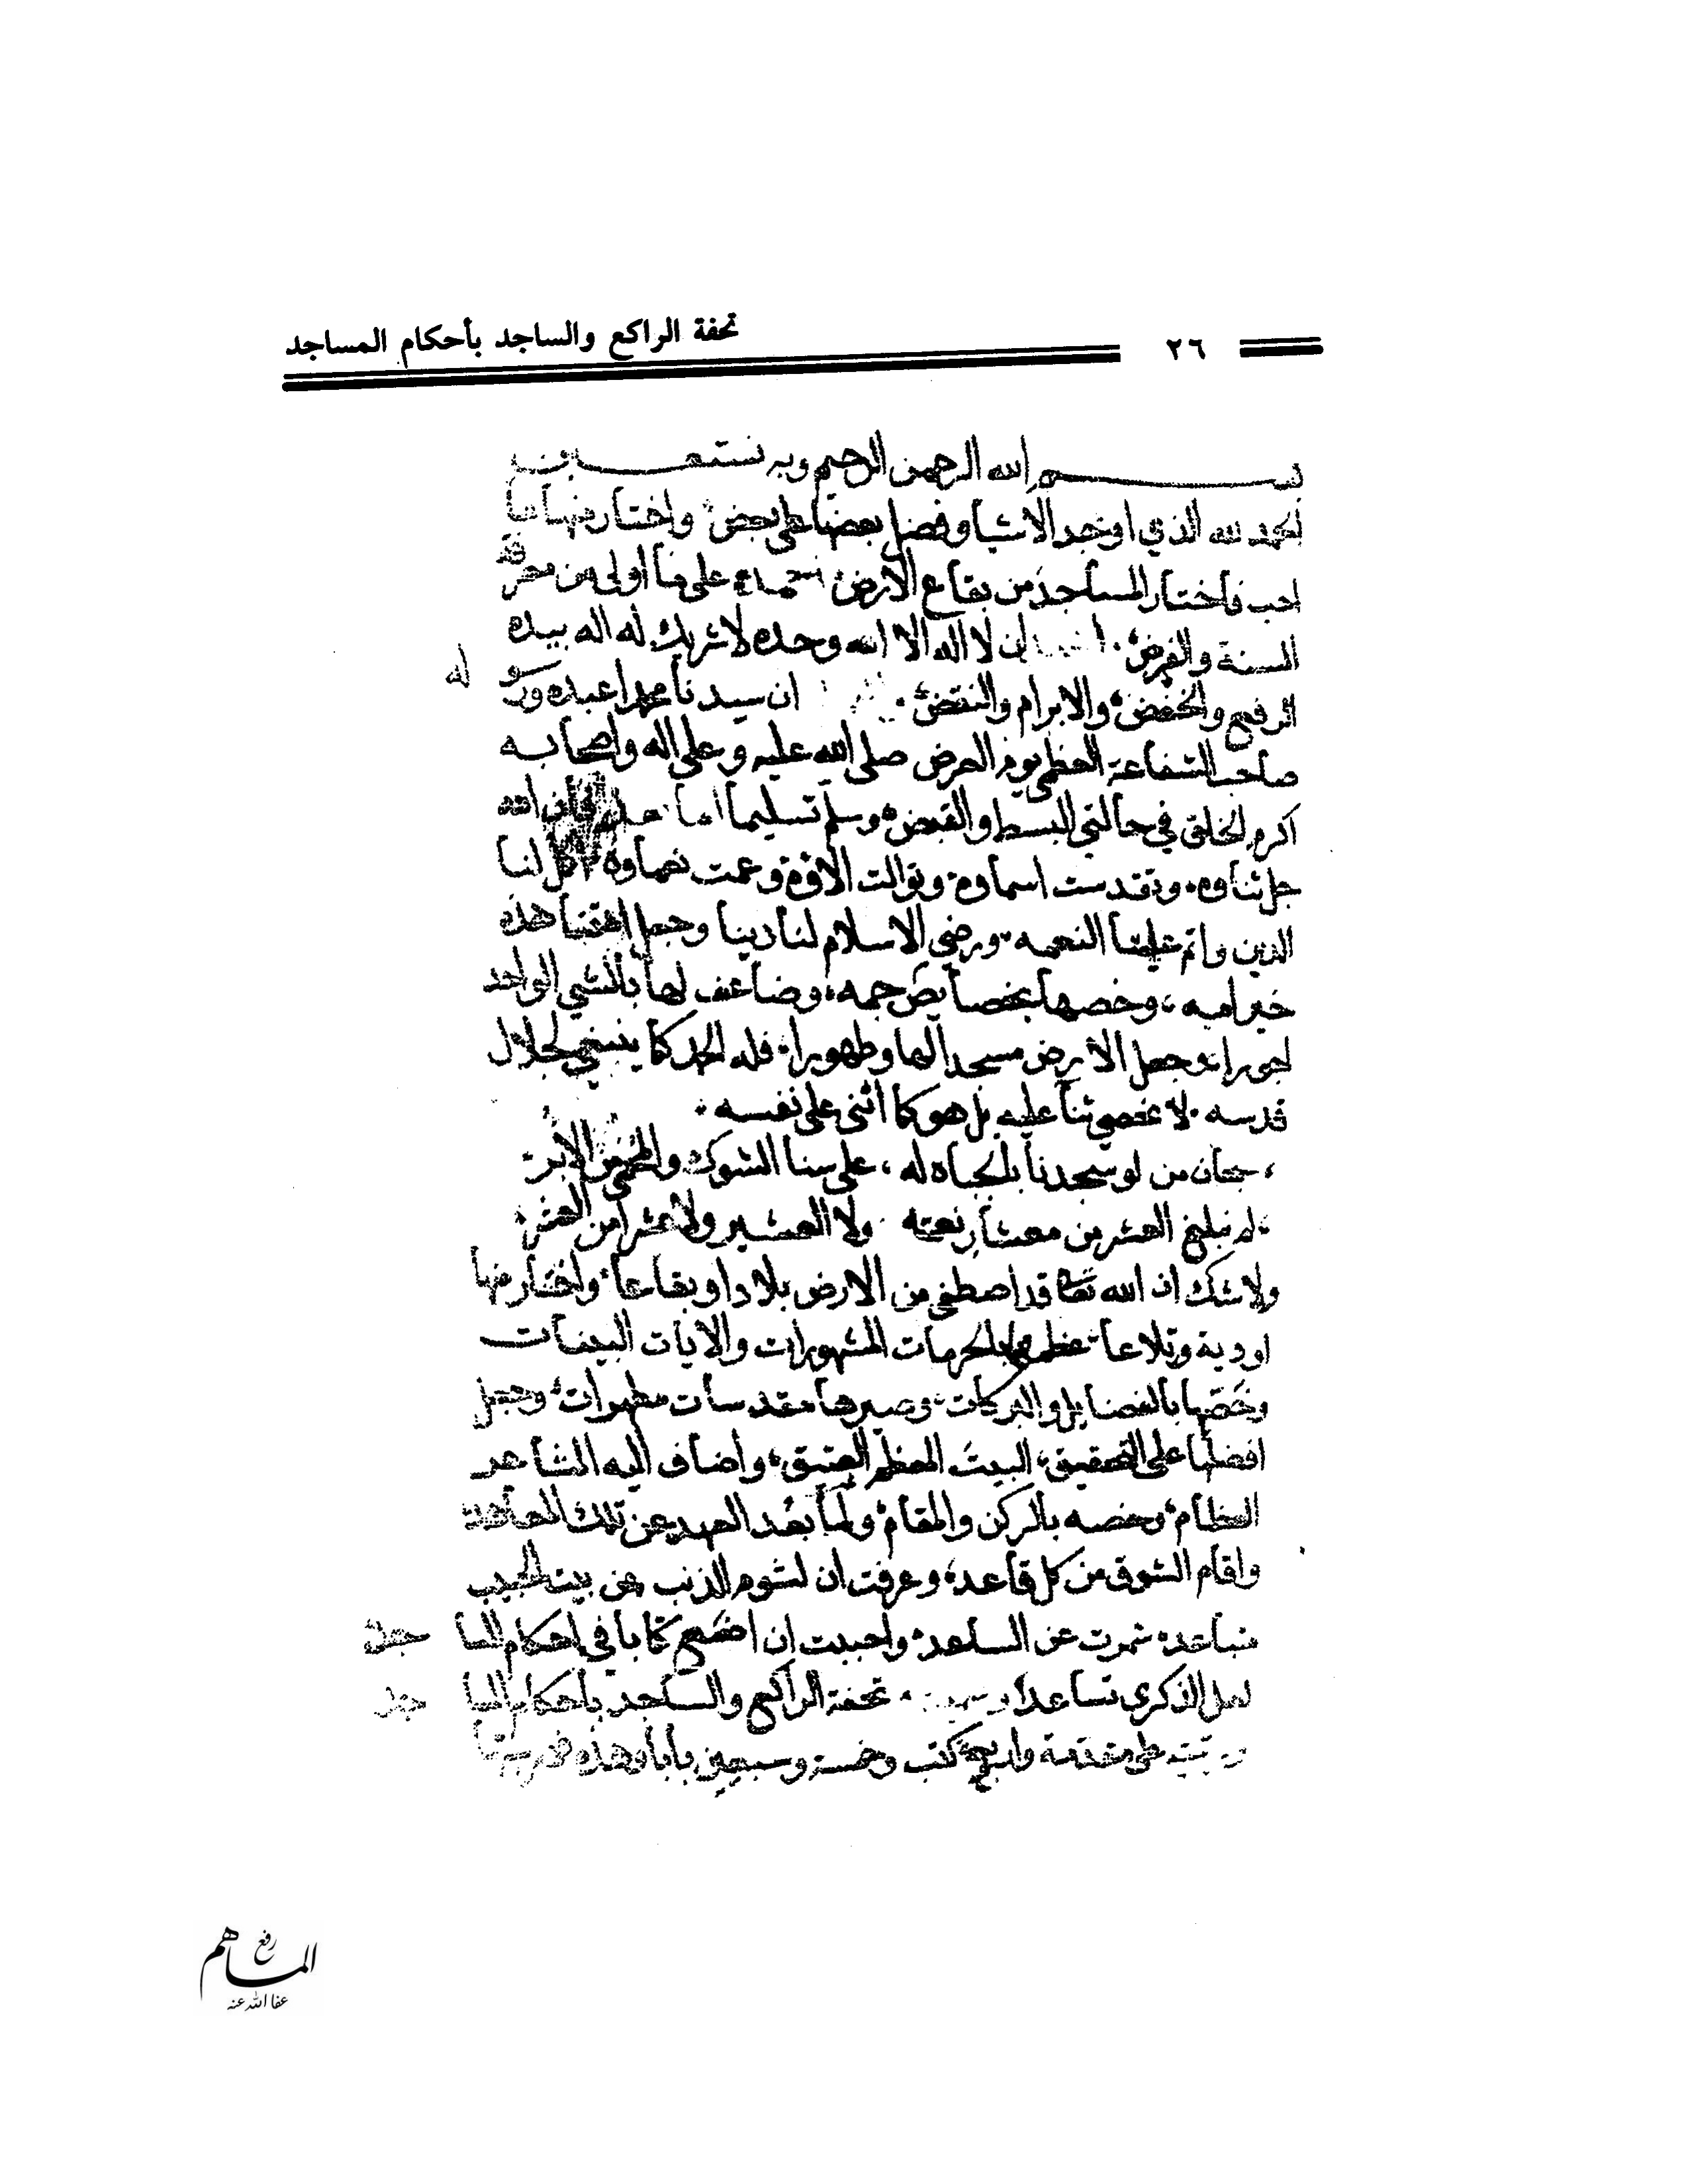 تحفة الراكع والساجد بأحكام المساجد
٢٦
بسم الله الرحمن الرحيم وبه نستعين
الحمد لله الذي اوجد الاشيا وفضل بعضها على بعض واختار منها ما
احب فاختار المساجد من بقاع الارض على ما أولى من معرفة
السنة والفرض ان لا اله الا الله وحده لا شريك له اله بيده
الرفع والخفض والابرام والنقض ان سيدنا محمدا عبده ورسو له
صاحب الشفاعة العظمى يوم العرض صلى الله عليه وعلى اله واصحابه
اكرم الخلق في حالتي البسط والقبض وسلم تسليما اما فان الله
جل ثناوه وتقدست اسماوه وتوالت الاوه وعمت نعماوه اكمل لنا
الدين واتم علينا النعمه ورضي الاسلام لنا دينا وجعل امتنا هذه
خير امه وخصها بخصايص جمه وضاعف لها بالشي الواحد
اجورا وجعل الارض مسجدا لها وطهورا فله الحمد كما ينبغي لجلال
قدسه لا نحصي ثنا عليه بل هو كما اثنى على نفسه
سبحان من لو سجدنا بالجباه له على سنا الشوك والمحمى من الابر
لم نبلغ العشر من معشار نعمته ولا العشير ولا عشرا من العشر
ولا شك ان الله تعا قد اصطفى من الارض بلادا وبقاعا واختار منها
اودية وتلاعا عظمها بالحرمات المشهورات والايات البينات
وخصها بالفضايل والبركات وصيرها مقدسات مطهرات وجعل
افضلها على التحقيق البيت المعظم العتيق واضاف اليه المشاعر
العظام وخصه بالركن والمقام ولما بعد العهد عن تلك المعاهد
واقام الشوق من كل قاعد وعرفت ان لشوم الذنب عن بيت الحبيب
مباعد شمرت عن الساعد واحببت ان اضع كتابا في احكام المسا جد
لعل الذكرى تساعد تحفة الراكع والساجد باحكام المسا جد
ورتبته على مقدمة واربعة كتب وخمسة وسبعين بابا وهذه فهرستها
رفع
المساهم
عفا الله عنه